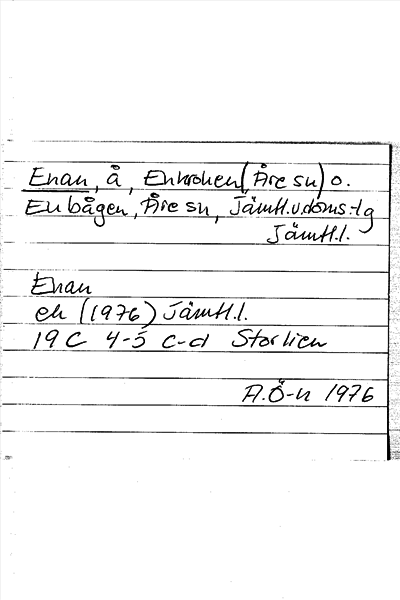 Enan, å, Enkroken (Åre sn) o.
Enbågen, Åre sn, Jämtl.v.doms:lg
Jämtl.l.
Enan
ek (1976) Jämtl.l.
19 C 4-5 c-d Storlien
A.Ö-n 1976